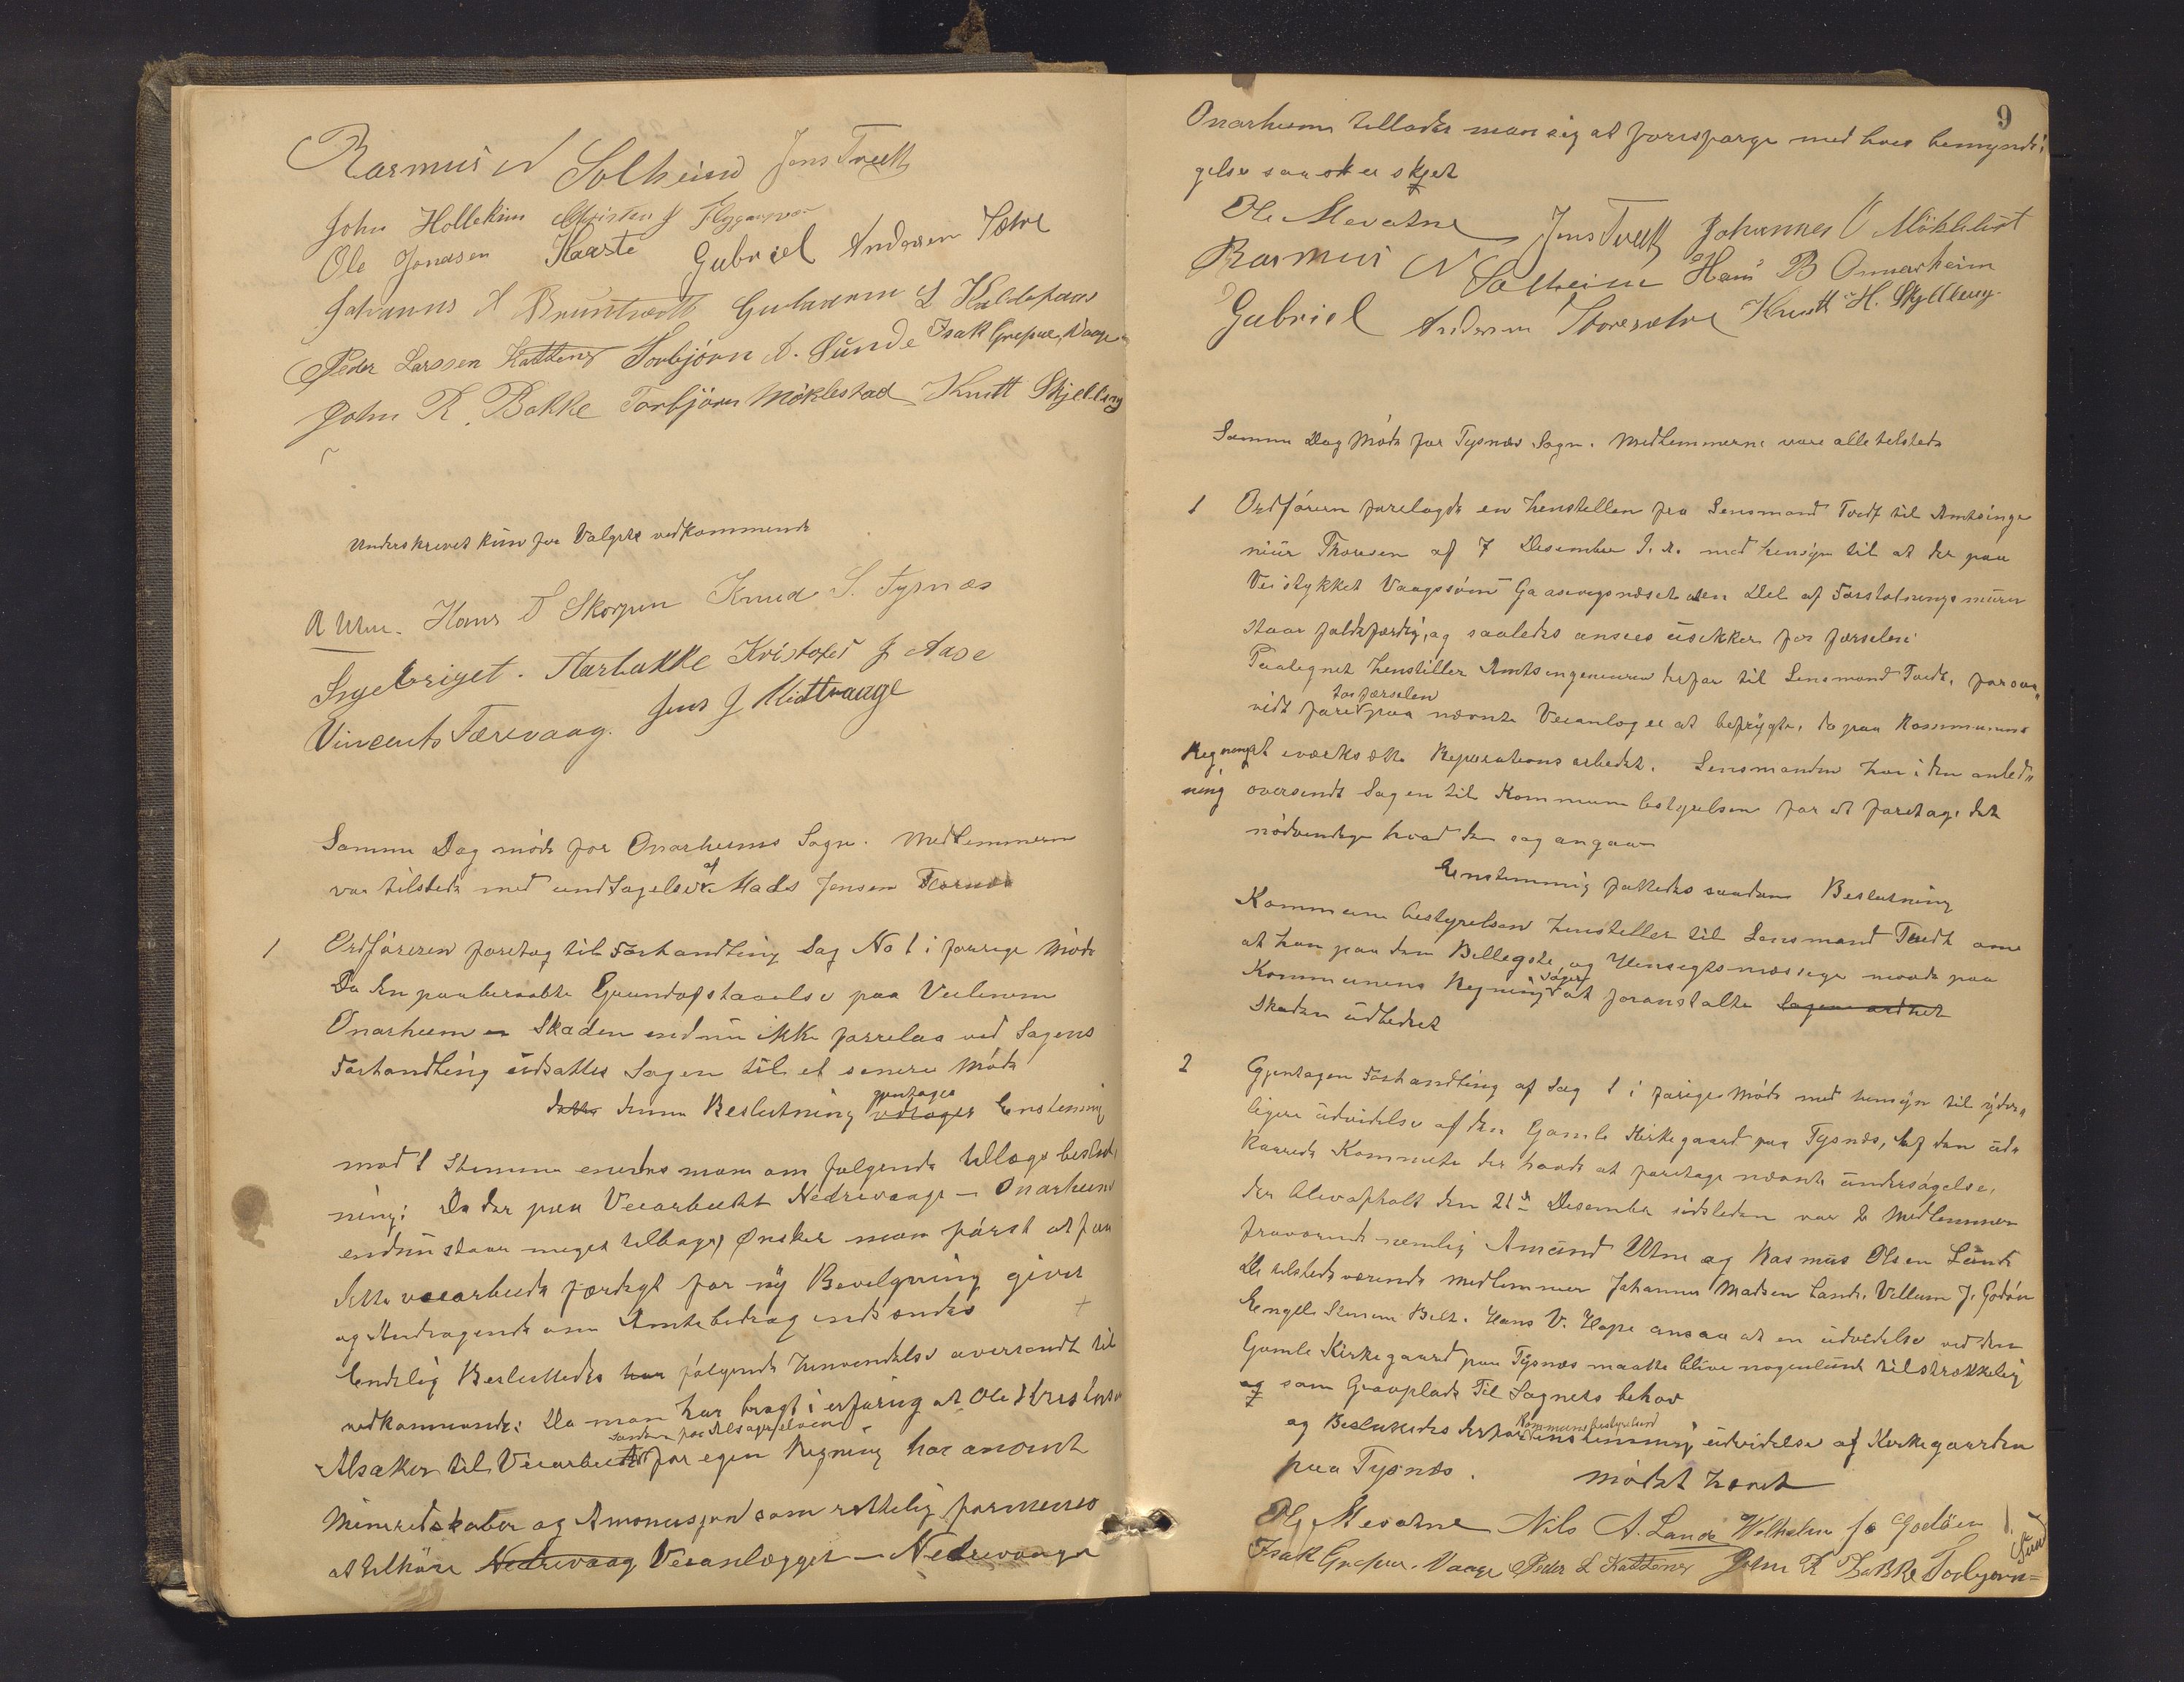 Rasmus N Solheim Jens Tveitt
John Hollekim Christen J Flyganger
Ole Jonasen Haaste Gabriel Andersen Sætre
Johannes H Bruntveth Guttorm L Kaldefoss
Peder Larssen Kattenes Torbjörn A. Sunde Isak Grepne Vaage
John R. Bakke Torbjörn Möklestad Knutt Skjelling
Underskrevet kun for Valgets vedkommende
A Utne. Hans S Skorpen Knud S. Tysnæs
Ingebrigt. Hærbakke Kristofer J Aase
Vincents Tærevaag. Jens J Midtvaage
Samme Dag møde for Onarheims Sogn. Medlemmern
var tilstede med undtagelse af Mads Jensen
1 Ordføreren foretog til Forhandling Sag No 1 i forrige Møde
Da den paaberaabte Grundafstaaelse paa Veilinien
Onarheim - Skaden endnu ikke forrelaa ved Sagens
Forhandling udsattes Sagen til et senere Møde
dette denne Beslutning vedtages gjentages Enstemmig
mod 1 Stemme enedes man om følgende tillægs beslut-
ning: Da der paa Veiarbeidet Nedrevaage - Onarheim
endnu staar meget tilbage, Ønsker man først at faa
dette veiarbeide færdigt før ny Bevilgning giver
og Andragende om Amtsbidrag indsendes +
Endelig Besluttedes har følgende Henvendelse oversendt til
vedkommende: Da man har bragt i erfaring at Ole Kristensen
Alsaker til Veiarbeidet for egen Regning har anvendt
Mineredskaber og Amonusjon som rettelig formenes
at tilhøre Nedrevaag Veianlægget - Nedrevaage
9
Onarheim tillader man sig at forespørge med hves bemyndi-
gelse saa er skjet
Ole Mevatne Jens Tveitt Johannes O Möklebust
Rasmus N Solheim Hans B Onnarheim
Gabriel Andersen Storesætre Knutt H. Skjelleng
Samme Dag Møde for Tysnæs Sogn. Medlemmerne vare alle tilstede
1 Ordføreren forelagde en henstillen fra Lensmand Tvedt til Amtsinge
niür Thoresen af 7 Desember f. A. med hensyn til at der paa
Veistykket Vaagssøm Gaasevigsnæset den Del af Forstøtningsmuren
staar faldefærdig, og saaledes ansees usekker for færselen
Paategnet henstiller Amtsingeniøren herfor til Lensmand Tvedt, forsaa-
vidt fare for færselen paa nævnte Veianlæg er at befrygte, da paa Kommunens
Regning at iværksætte Reperationsarbeidet. Lensmanden har i den anled-
ning oversendt Sagen til Kommunebestyrelsen for at foretage det
nødvendige hvad den sag angaar
Enstemmig fattedes saadan Beslutning
Kommunebestyrelsen henstiller til Lensmand Tvedt om
at han paa den Billegste og Hensegtsmæssige maade paa
Kommunens Regning søger at foranstalte Sagen ordnet
Skaden udbedret
2 Gjentagen Forhandling af Sag 1 i forige Møde med hensyn til yder-
ligere udvidelse af den Gamle Kirkegaard paa Tysnæs, Af den ud-
kaarede Kommite der havde at foretage nævnte undersøgelse,
der blev afholt den 21de Desember sidsleden var 2 Medlemmer
fraværende nemlig Amund Utne og Rasmus Olsen Lunde
De tilstedeværende Medlemmer Johannes Madsen Lande, Villum J. Godøen
Engel Stensen Belt. Hans V. Hope ansaa at en udvidelse ved den
Gamle Kirkegaard paa Tysnæs maatte blive nogenlunde tilstrækkelig
og som Gravplads Til Sognets behov
og Besluttedes derfor Kommunebestyrelsen enstemmig udvidelse af Kirkegaarden
paa Tysnæs. Mødet hævet
Ole Mevatne Nils A. Lande Wilhelm Js Godöen
Isak Grepne. Vaage Peder L Kattenes John R Bakke Torbjørn = Sund